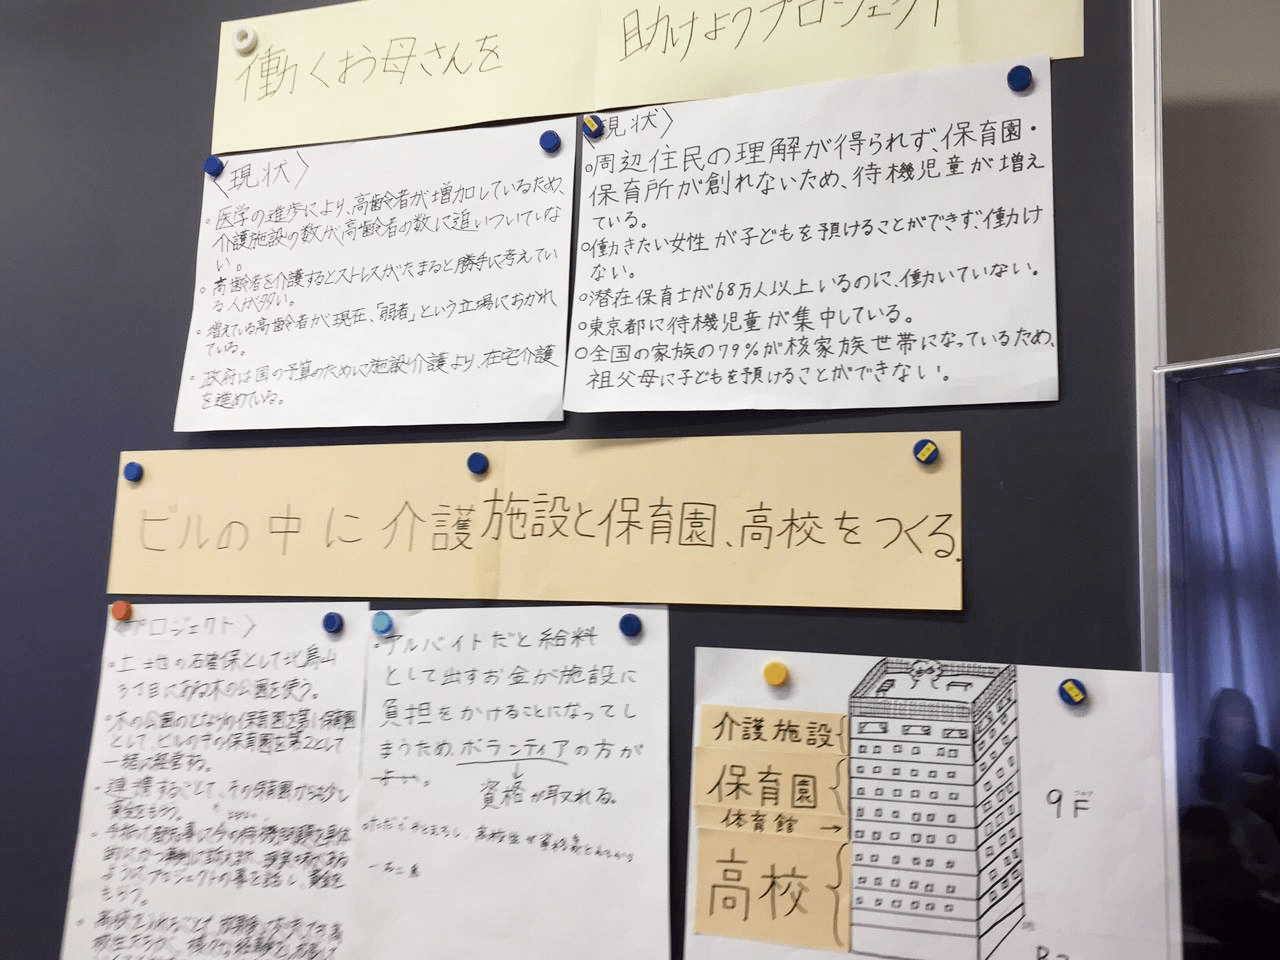 働くお母さんを 助けようプロジェクト
〈現状〉
・医学の進歩により、高齢者が増加しているため、
介護施設の数が、高齢者の数に追いついていな
い。
・高齢者を介護するとストレスがたまると勝手に考えてい
る人が多い。
・増えている高齢者が現在、「弱者」という立場におかれ
ている。
・政府は国の予算のために施設介護より、在宅介護
を進めている。
〈現状〉
○周辺住民の理解が得られず、保育園・
保育所が創れないため、待機児童が増え
ている。
○働きたい女性が子どもを預けることができず、働け
ない。
○潜在保育士が68万人以上いるのに、働いていない。
○東京都に待機児童が集中している。
○全国の家族の79%が核家族世帯になっているため、
祖父母に子どもを預けることができない。
ビルの中に介護施設と保育園、高校をつくる.
〈プロジェクト〉
・土地の確保として北烏山
3丁目にある木の公園を使う。
・木の公園のとなりの保育園を第1保育園
として、ビルの中の保育園を第2として
一緒に経営する。
・連携することで、その保育園からも少し
資金をもらう。
プロジェクトの事を話し、資金を
もらう。
・アルバイトだと給料
として出すお金が施設に
負担をかけることになってし
まうため、ボランティアの方が
よい。
資格が取れる。
介護施設
保育園
体育館→
高校
9F